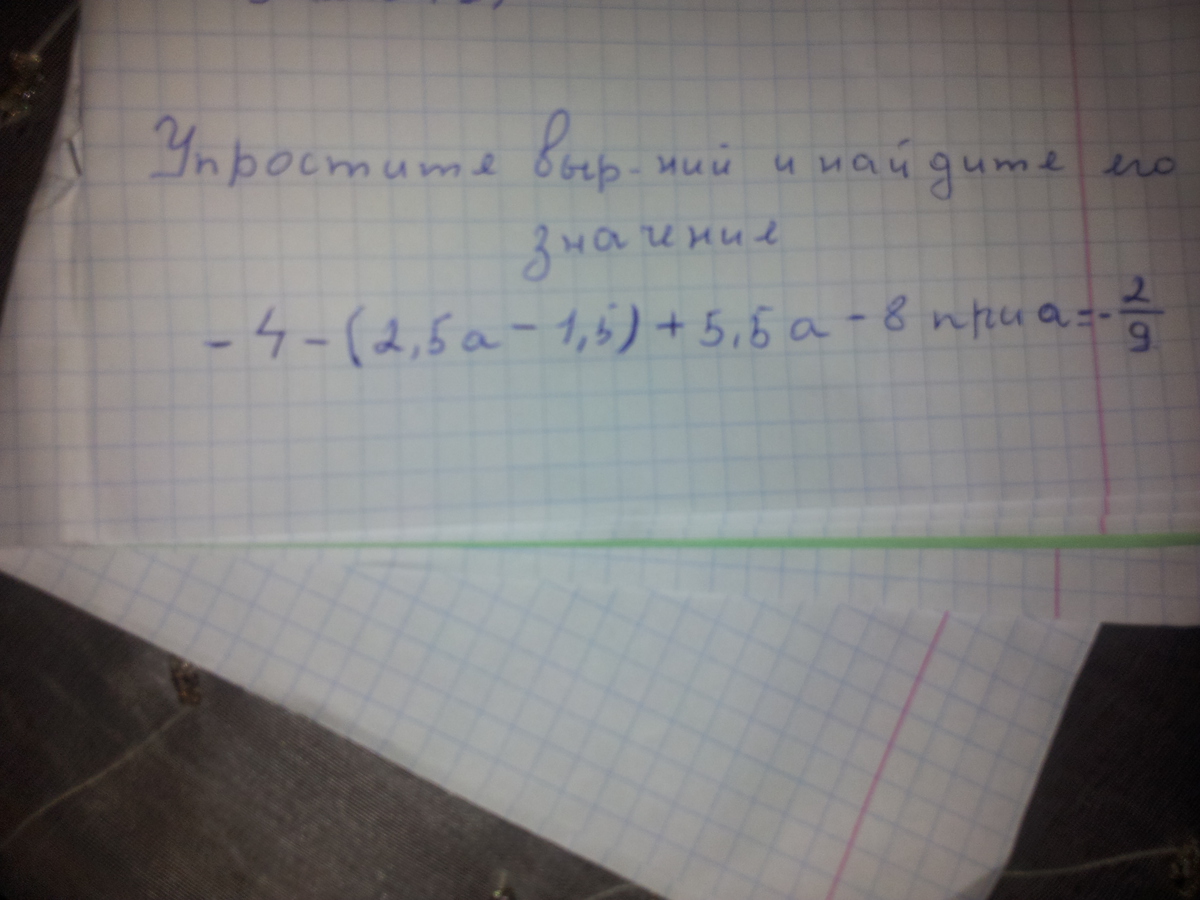 Упростите выр-ний и найдите его
значение
- 4 - (2,5a - 1,5) + 5,5a - 8 при a = - 2/9